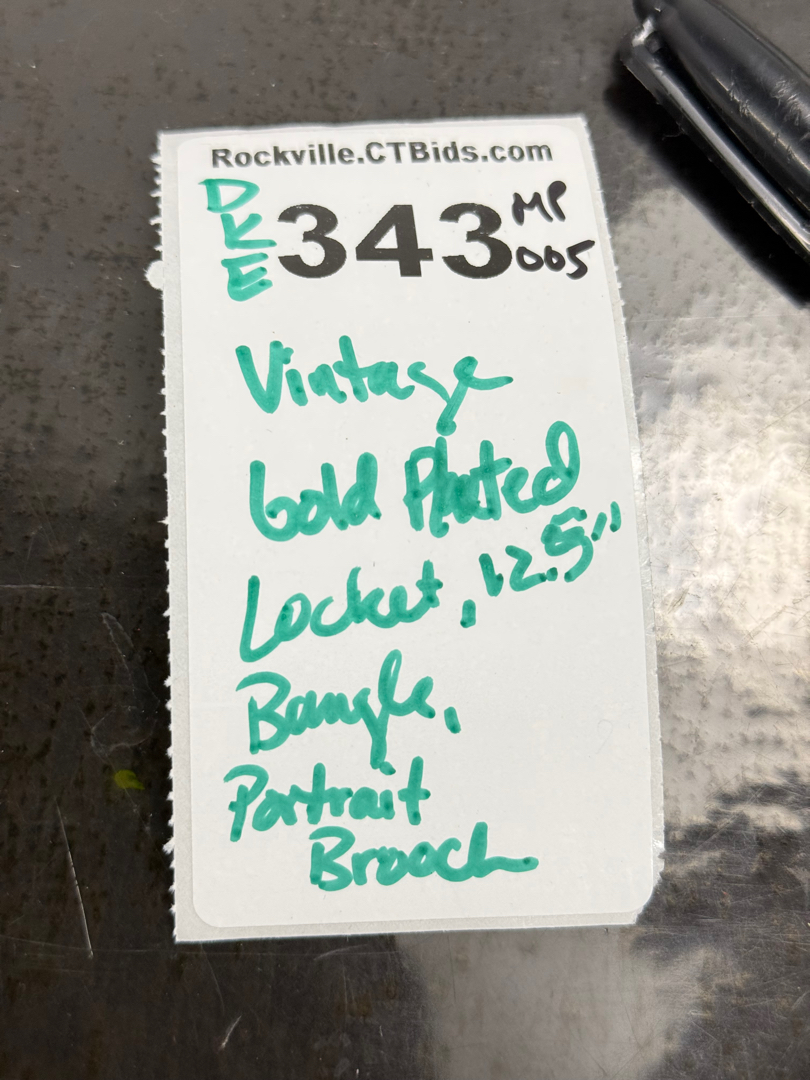 Rockville.CTBids.com
DKE 343 MP 005
Vintage
Gold Plated
Locket, 12.5"
Bangle,
Portrait
Brooch